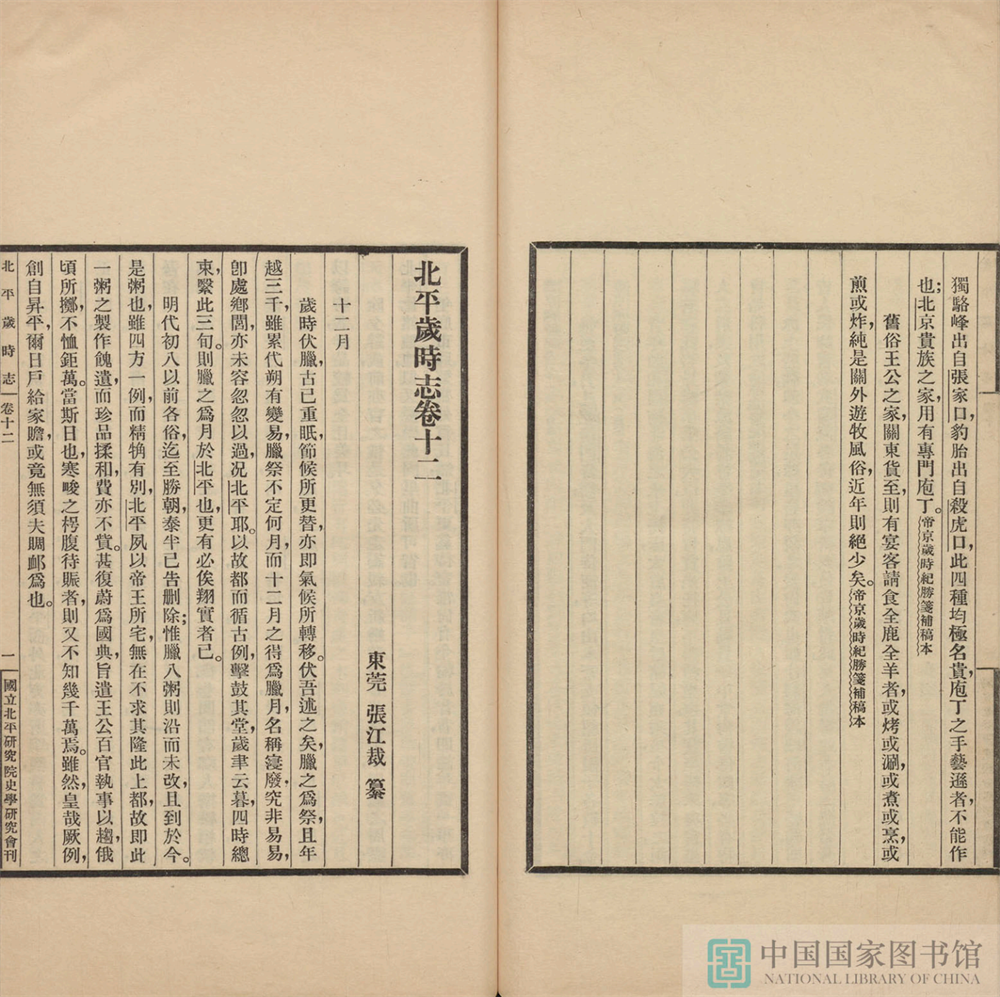 獨駱峰出自張家口,豹胎出自殺虎口,此四種均極名貴,庖丁之手藝遜者,不能作
也;北京貴族之家,用有專門庖丁。帝京歲時紀勝箋補稿本
舊俗王公之家,關東貨至,則有宴客請食全鹿全羊者,或烤或涮,或煮或烹,或
煎或炸,純是關外遊牧風俗,近年則絕少矣。帝京歲時紀勝箋補稿本
北平歲時志卷十二
東莞 張江裁 纂
十二月
歲時伏臘,古已重眠,節候所更替,亦即氣候所轉移。伏吾述之矣,臘之爲祭,且年
越三千,雖累代朔有變易,臘祭不定何月,而十二月之得爲臘月,名稱寔廢,究非易易,
卽處鄉閭,亦未容忽忽以過,況北平耶。以故都而循古例,擊鼓其堂,歲聿云暮,四時總
束,繫此三旬,則臘之爲月於北平也,更有必俟翔實者已。
明代初八以前各俗,迄至勝朝,泰半已告删除;惟臘八粥則沿而未改,且到於今。
是粥也,雖四方一例,而精觕有別,北平夙以帝王所宅,無在不求其隆,此上都故即此
一粥之製作餽遺,而珍品揉和,費亦不貲。甚復蔚爲國典,旨遣王公百官執事以趨,俄
頃所擲,不恤鉅萬。當斯日也,寒畯之枵腹待賑者,則又不知幾千萬焉。雖然,皇哉厥例,
創自昇平,爾日戶給家贍,或竟無須夫賙卹爲也。
北平歲時志 卷十二 一 國立北平研究院史學研究會刊
中国国家图书馆
NATIONAL LIBRARY OF CHINA